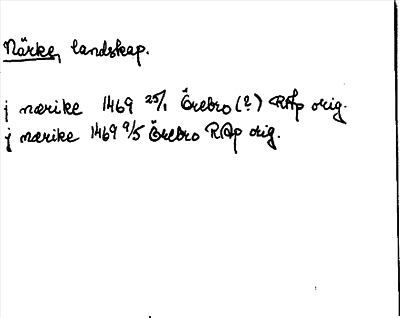 Närke, landskap.
j nærike 1469 25/1 Örebro (?) RAp orig.
j nærike 1469 9/5 Örebro RAp orig.